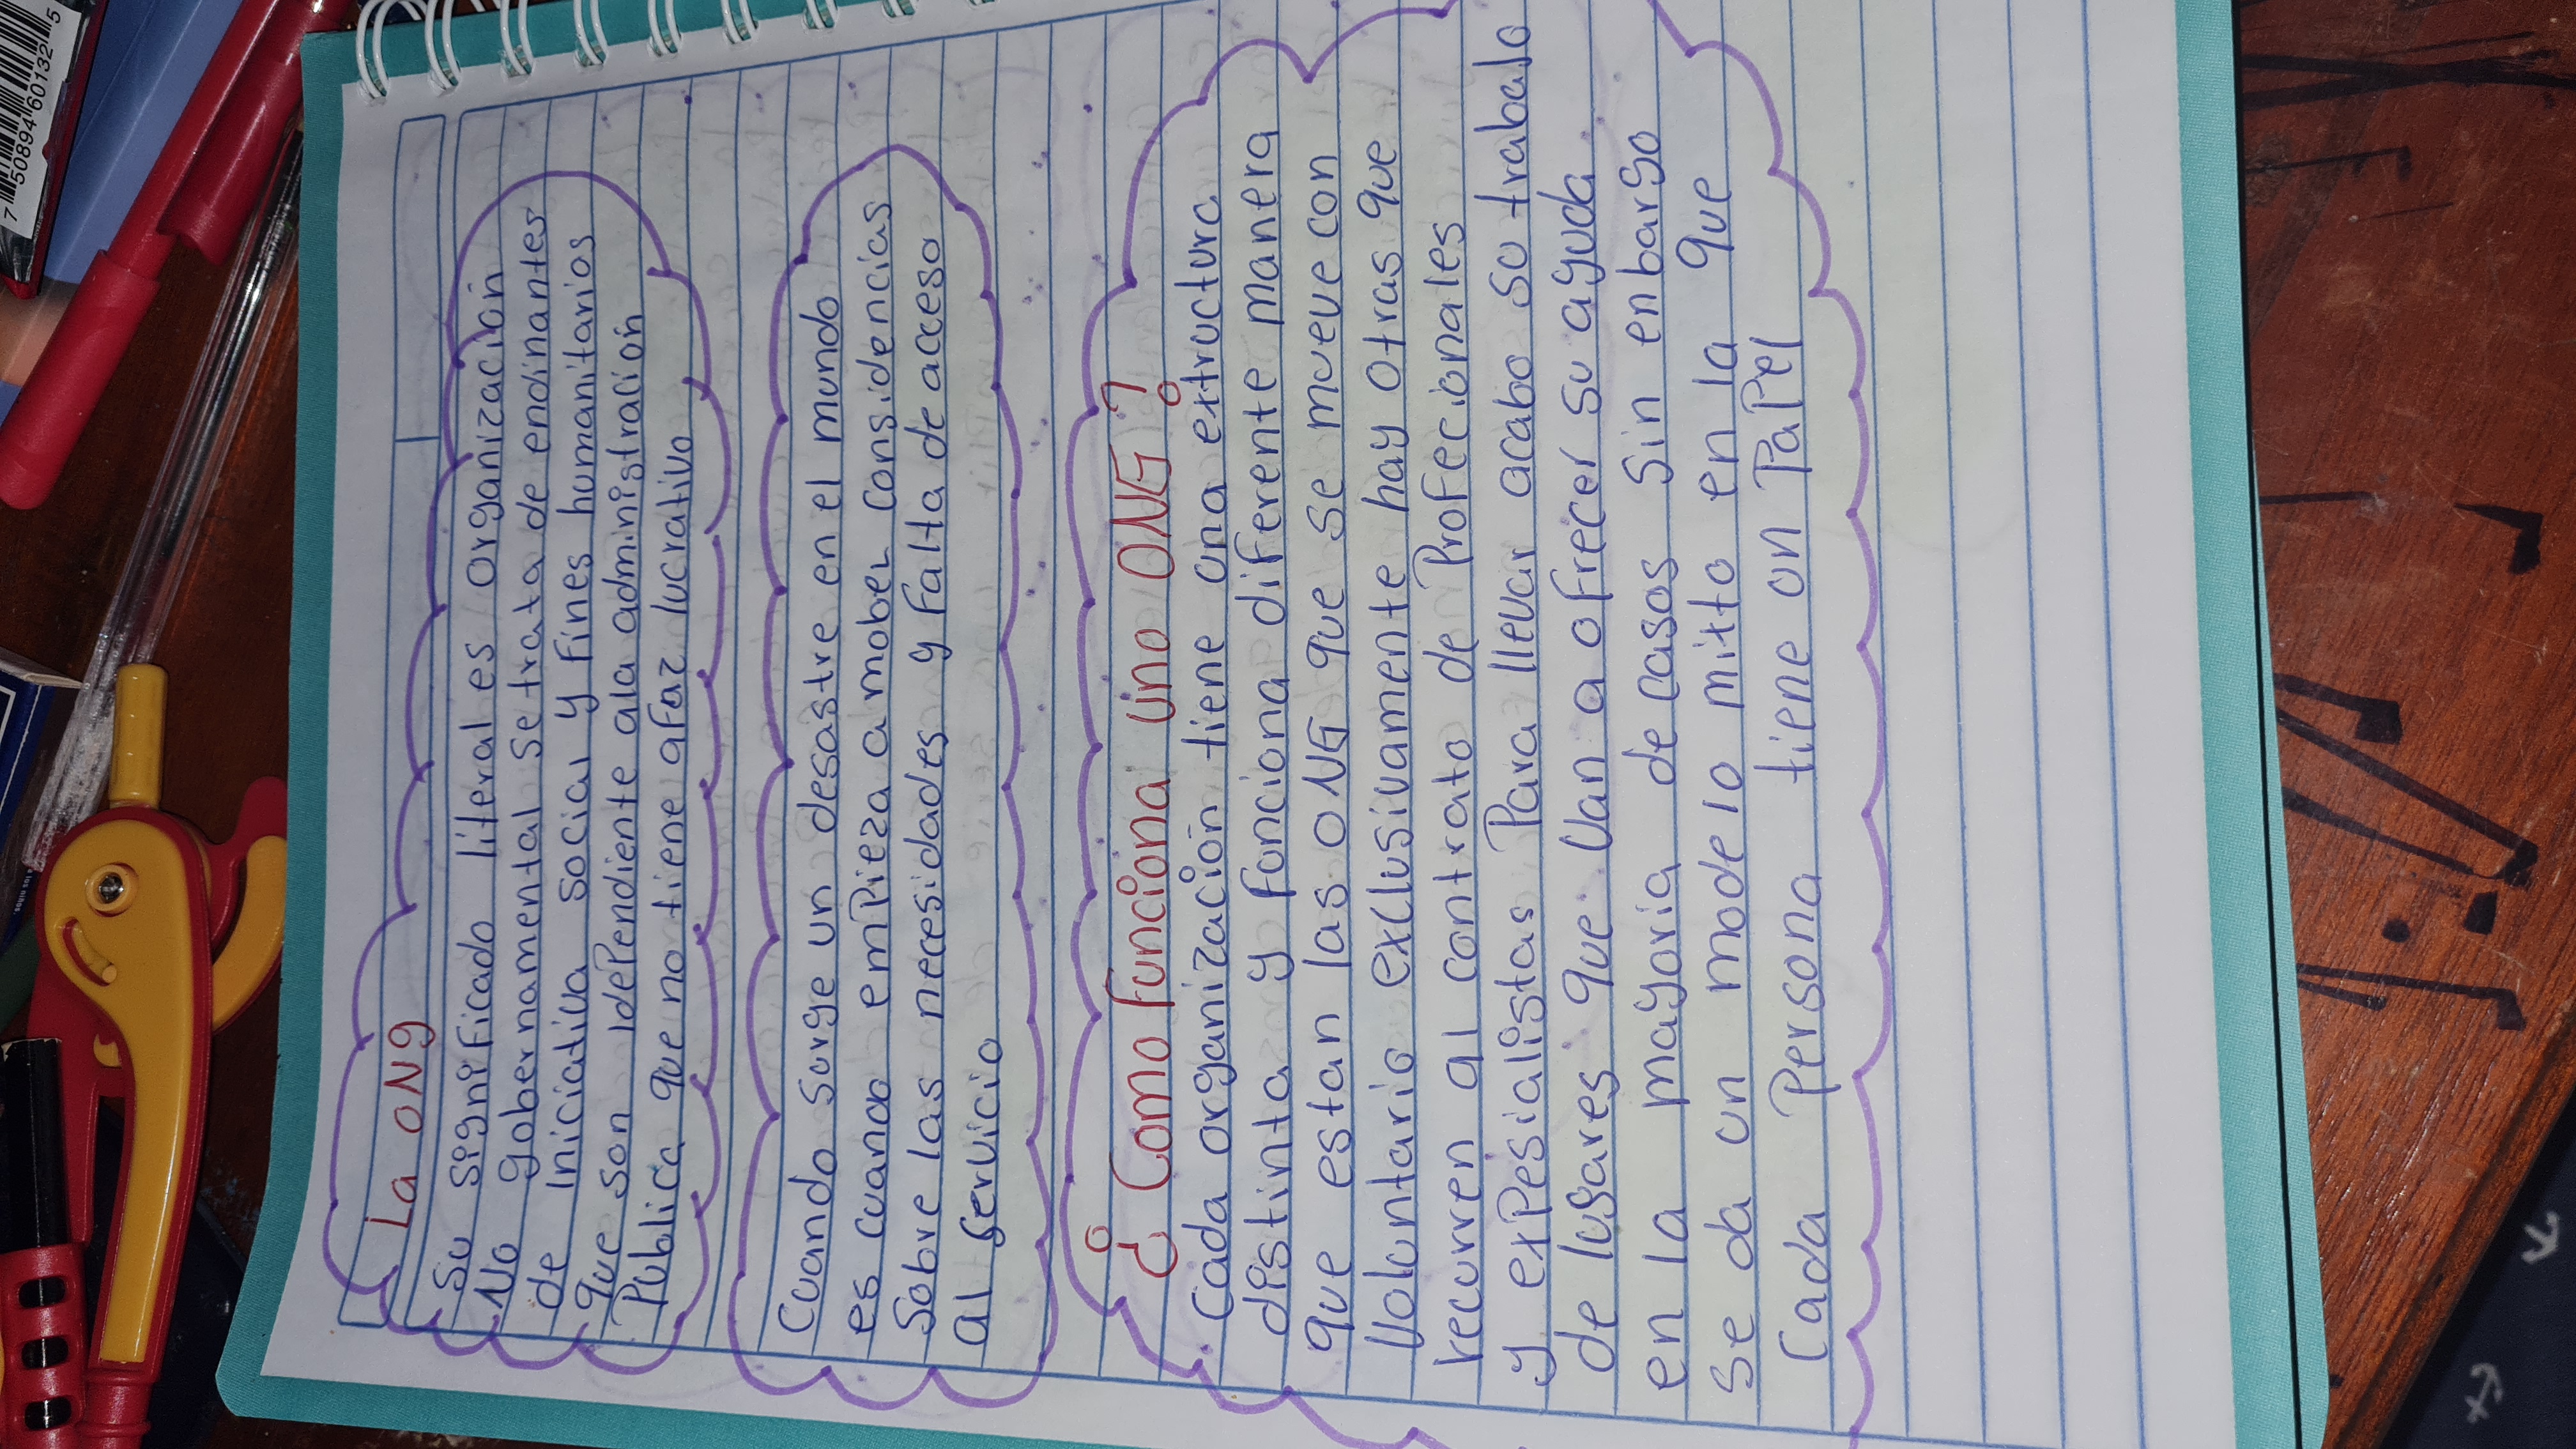 La ONg
Su significado literal es organización
No gobernamental se trata de endinantes
de iniciativa social y fines humanitarios
que son idependiente ala administración
Publica que no tiene afaz lucrativo
Cuando surge un desastre en el mundo
es cuando empieza a mober considencias
Sobre las necesidades y falta de acceso
al servicio
¿Como funciona uno ONG?
Cada organización tiene una extructura
distinta y funciona diferente manera
que estan las ONG que se mueve con
Voluntario exclusivamente hay otras que
recurren al contrato de Profecionales
y expesialistas Para llevar acabo su trabajo
de lugares que van a ofrecer su ayuda
en la mayoria de casos sin enbargo
se da un modelo mixto en la que
Cada Persona tiene un Papel
7 50894 60132 5